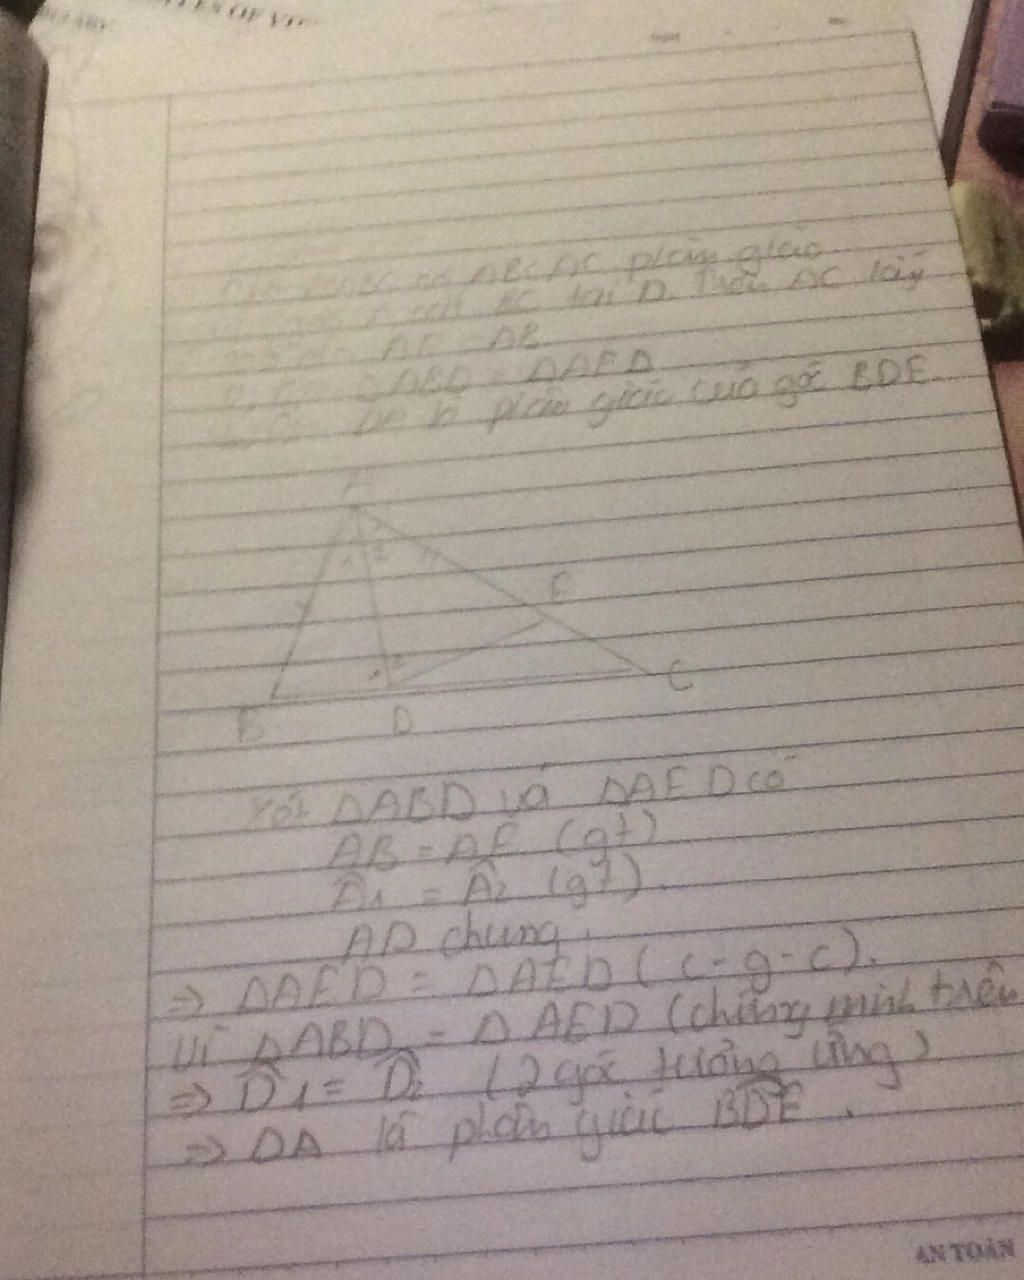 ABC AC phân giác
BC tại D. Trên AC lấy
AE = AB
ΔABD = ΔAED
phân giác của góc BDE.
A
1 2
E
2
C
B D
Xét ΔABD và ΔAED có
AB = AE (gt)
Â1 = Â2 (gt).
AD chung.
=> ΔAED = ΔAED (c-g-c).
Vì ΔABD = ΔAED (chứng minh trên
=> D̂1 = D̂2 (2 góc tương ứng)
=> DA là phân giác BD̂E.
AN TOÀN